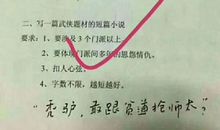 二、写一篇武侠题材的短篇小说
要求：1、要涉及3个门派以上。
2、要体现门派间多年的恩怨情仇。
3、扣人心弦。
4、字数不限，越短越好。
“秃驴，敢跟贫道抢师太？”